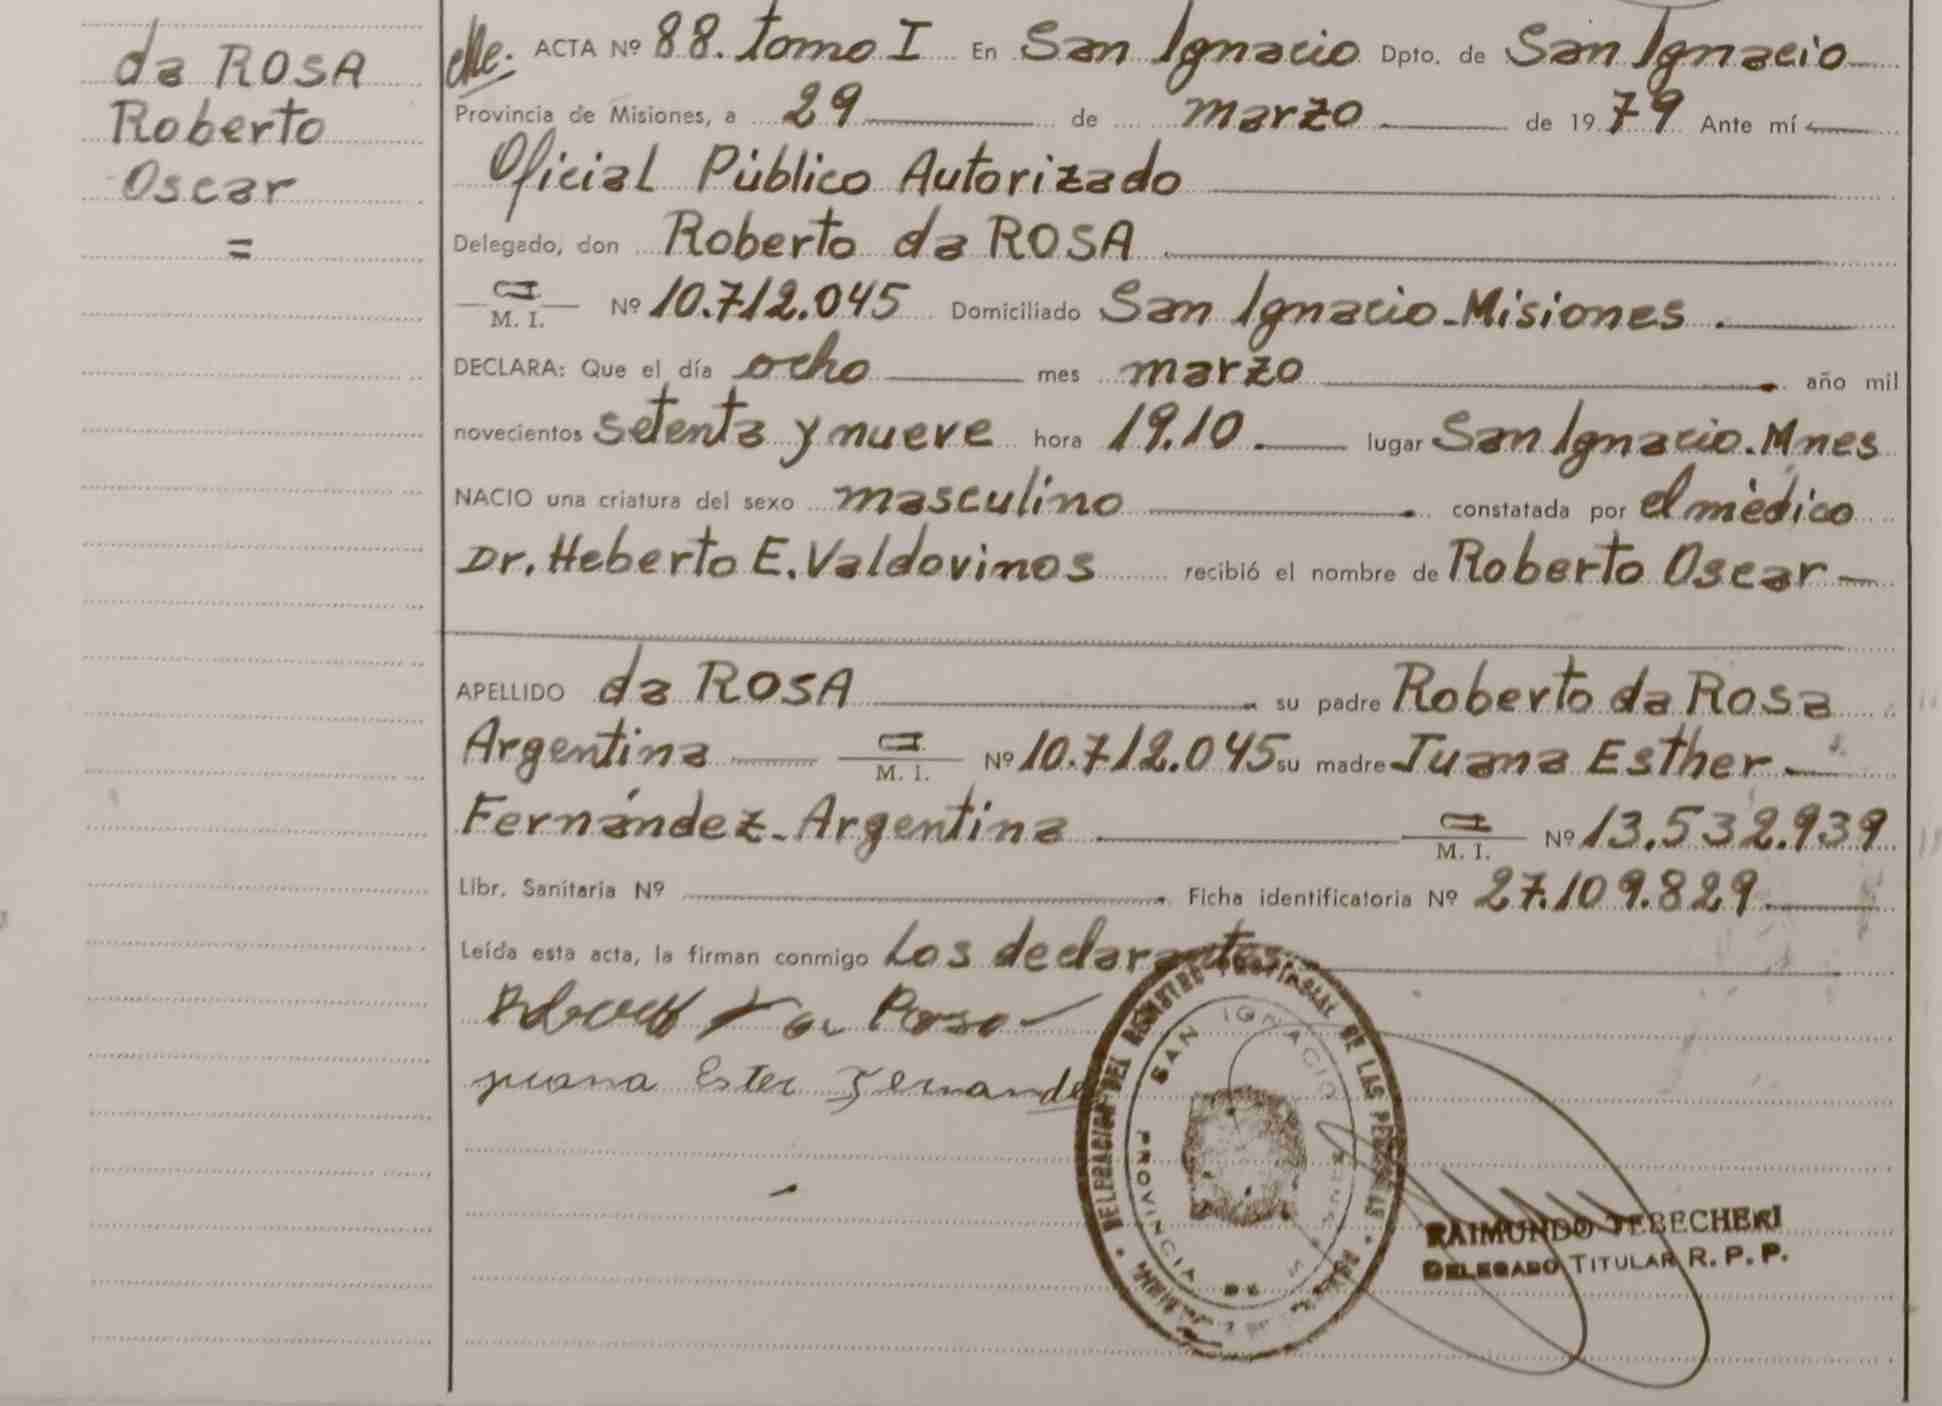 da ROSA
Roberto
Oscar
=
ACTA Nº 88. tomo I En San Ignacio Dpto. de San Ignacio
Provincia de Misiones, a 29 de marzo de 1979 Ante mí
Oficial Público Autorizado
Delegado, don Roberto da ROSA
CI
M. I. Nº 10.712.045 Domiciliado San Ignacio-Misiones.
DECLARA: Que el día ocho mes marzo año mil
novecientos setenta y nueve hora 19.10. lugar San Ignacio.Mnes
NACIO una criatura del sexo masculino constatada por el médico
Dr. Heberto E. Valdovinos recibió el nombre de Roberto Oscar
APELLIDO da ROSA su padre Roberto da Rosa
Argentina CI M. I. Nº 10.712.045 su madre Juana Esther
Fernández-Argentina CI M. I. Nº 13.532.939
Libr. Sanitaria Nº Ficha identificatoria Nº 27.109.829
Leída esta acta, la firman conmigo Los declarantes.
da Rosa
juana Ester Fernande
DELEGACION DEL REGISTRO PROVINCIAL DE LAS PERSONAS
SAN IGNACIO
PROVINCIA DE MISIONES
RAIMUNDO TEBECHERI
DELEGADO TITULAR R. P. P.